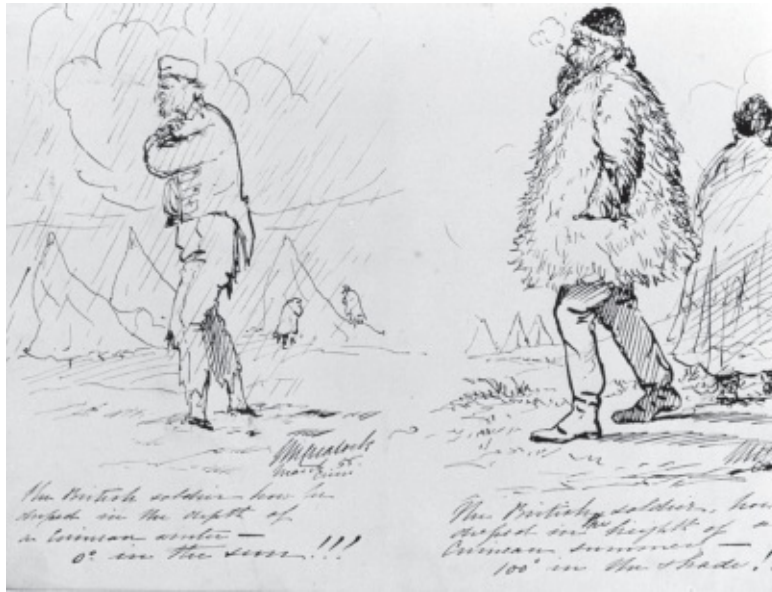 JN Crealock
March 55
Crim
The British soldier how he
dressed in the depth of
a Crimean winter —
0° in the sun!!!
The British soldier, how
dressed in the height of a
Crimean summer —
100° in the shade!